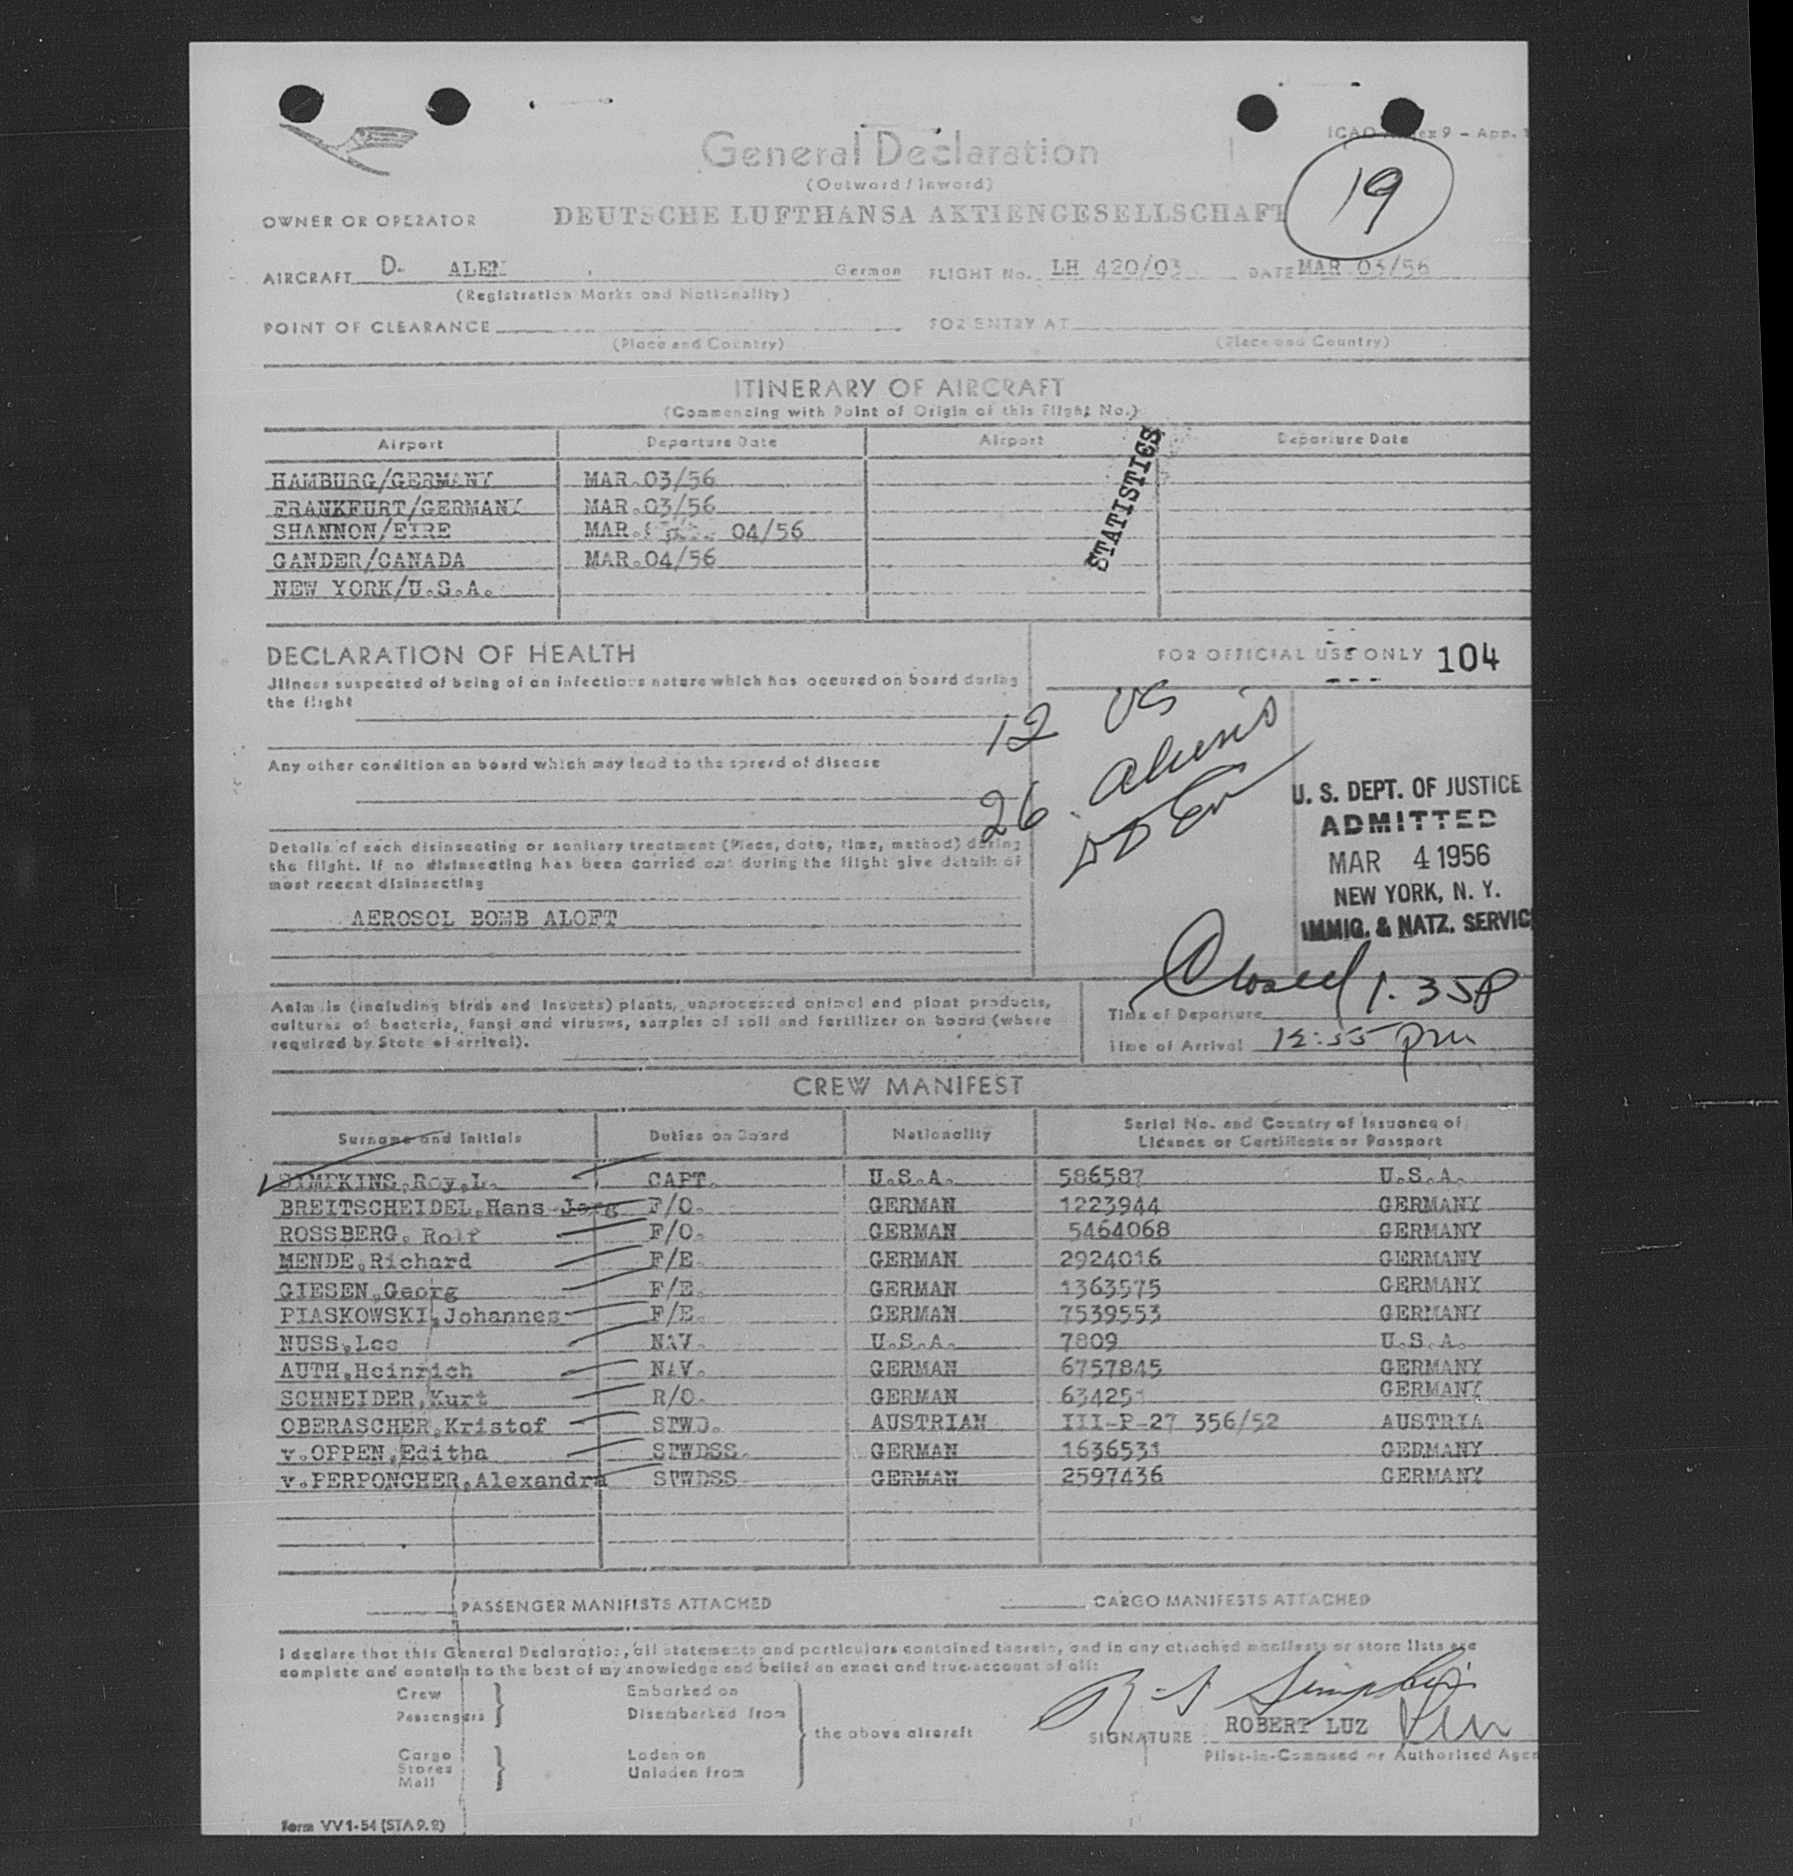 ICAO Annex 9 - App. 1
General Declaration
(Outward / Inward)
19
OWNER OR OPERATOR DEUTSCHE LUFTHANSA AKTIENGESELLSCHAFT
AIRCRAFT D- ALEM German FLIGHT No. LH 420/03 DATE MAR 03/56
(Registration Marks and Nationality)
POINT OF CLEARANCE FOR ENTRY AT
(Place and Country) (Place and Country)
ITINERARY OF AIRCRAFT
(Commencing with Point of Origin of this Flight No.)
Airport Departure Date Airport Departure Date
HAMBURG/GERMANY MAR.03/56
FRANKFURT/GERMANY MAR.03/56
SHANNON/EIRE MAR. 04/56
GANDER/CANADA MAR.04/56
NEW YORK/U.S.A.
STATISTICS
DECLARATION OF HEALTH
Illness suspected of being of an infectious nature which has occured on board during
the flight
Any other condition on board which may lead to the spread of disease
Details of each disinsecting or sanitary treatment (Place, date, time, method) during
the flight. If no disinsecting has been carried out during the flight give details of
most recent disinsecting
AEROSOL BOMB ALOFT
FOR OFFICIAL USE ONLY 104
12 US
26 Aliens
U. S. DEPT. OF JUSTICE
ADMITTED
MAR 4 1956
NEW YORK, N. Y.
IMMIG. & NATZ. SERVIC
Animals (including birds and insects) plants, unprocessed animal and plant products,
cultures of bacteria, fungi and viruses, samples of soil and fertilizer on board (where
required by State of arrival).
Closed 1.35P
Time of Departure
Time of Arrival 12:55 pm
CREW MANIFEST
Surname and Initials Duties on Board Nationality Serial No. and Country of Issuance of
Licence or Certificate or Passport
SIMPKINS,Roy,L. CAPT. U.S.A. 586587 U.S.A.
BREITSCHEIDEL,Hans Jörg F/O. GERMAN 1223944 GERMANY
ROSSBERG, Rolf F/O. GERMAN 5464068 GERMANY
MENDE,Richard F/E. GERMAN 2924016 GERMANY
GIESEN,Georg F/E. GERMAN 1363575 GERMANY
PIASKOWSKI,Johannes F/E. GERMAN 7539553 GERMANY
NUSS,Leo NAV. U.S.A. 7809 U.S.A.
AUTH,Heinrich NAV. GERMAN 6757845 GERMANY
SCHNEIDER,Kurt R/O. GERMAN GERMANY
OBERASCHER,Kristof STWD. AUSTRIAN III-P-27 356/52 AUSTRIA
v.OPPEN,Editha STWDSS. GERMAN 1636531 GERMANY
v.PERPONCHER,Alexandra STWDSS GERMAN 2597436 GERMANY
PASSENGER MANIFESTS ATTACHED CARGO MANIFESTS ATTACHED
I declare that this General Declaration, all statements and particulars contained therein, and in any attached manifests or store lists are
complete and contain to the best of my knowledge and belief an exact and true account of all:
Crew Embarked on
Passengers Disembarked from
the above aircraft
Cargo Laden on
Stores Unladen from
Mail
R L Simpkins
SIGNATURE ROBERT LUZ
Pilot-in-Command or Authorised Agen
Form VV1-54 (STA 9.2)